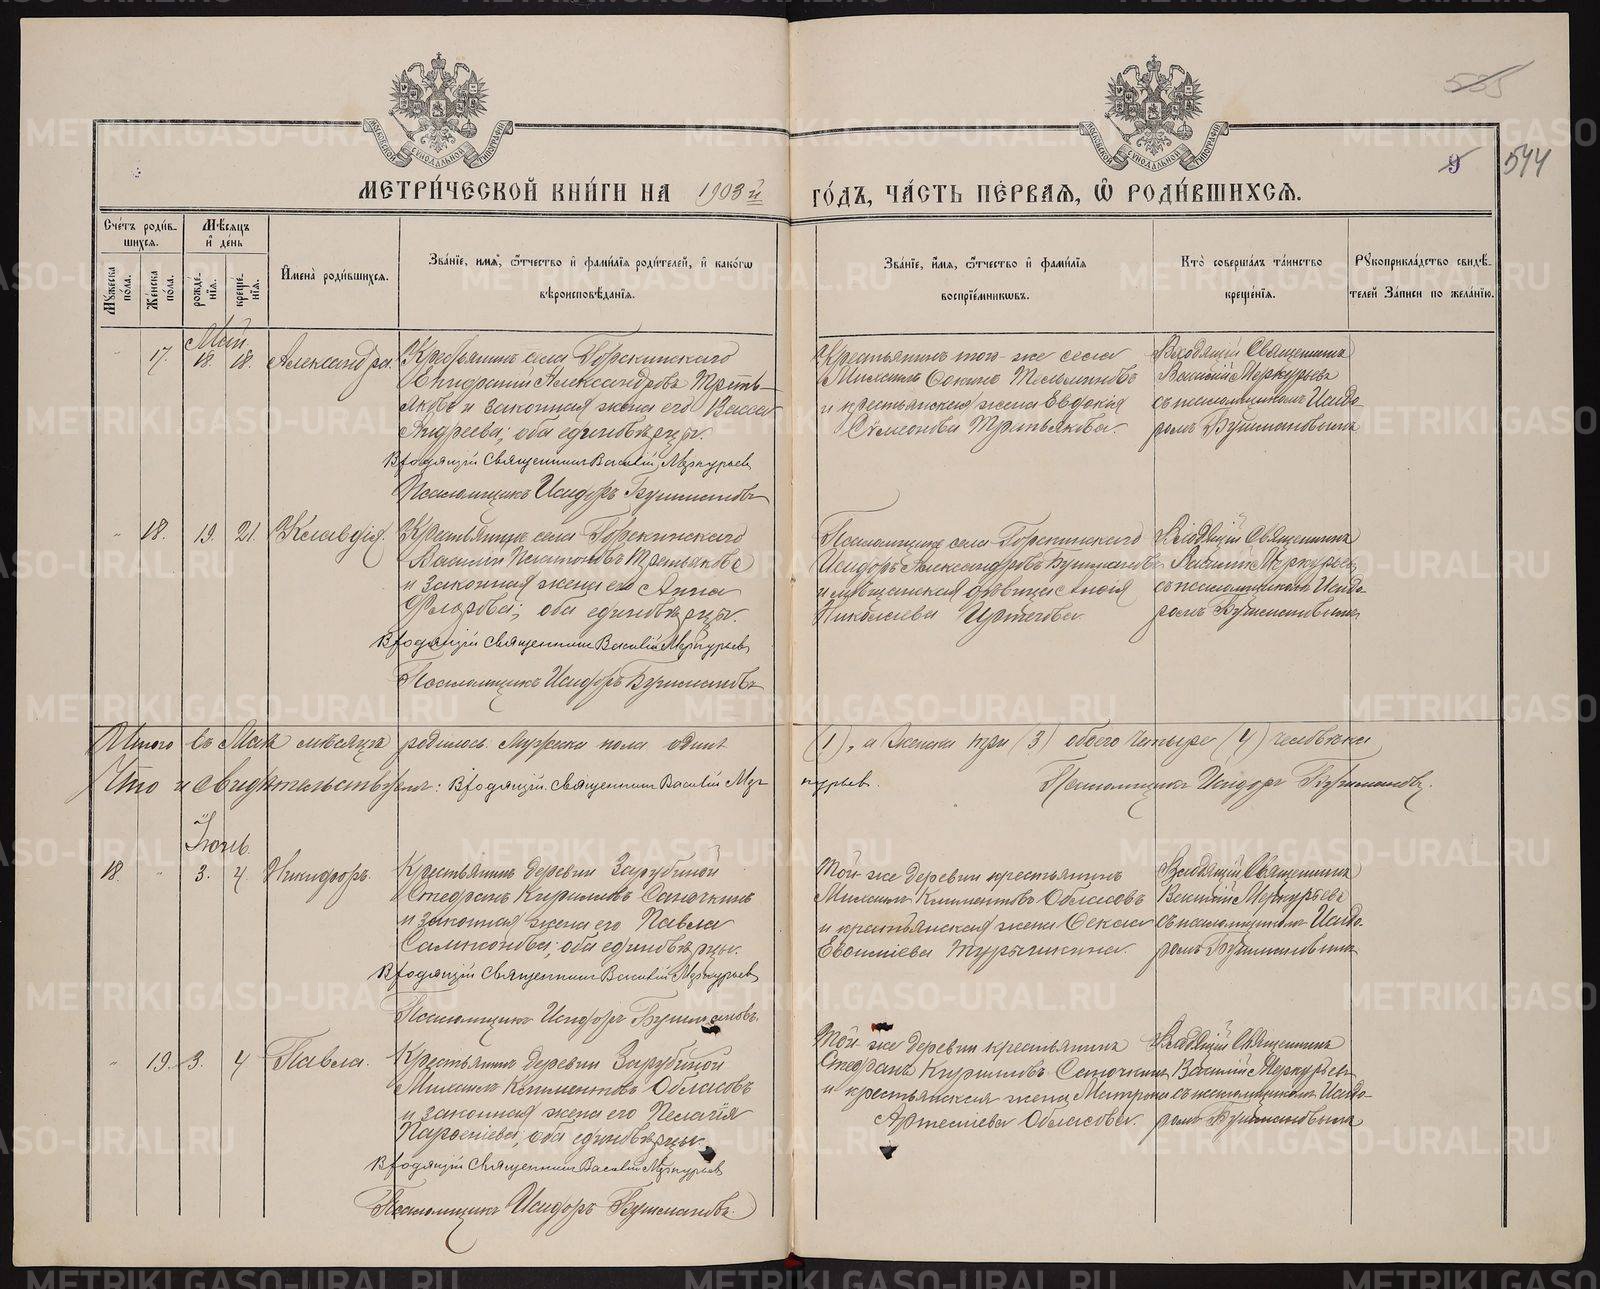 555
9
544
МОСКОВСКОЙ СѴНОДАЛЬНОЙ ТИПОГРАФІИ
МОСКОВСКОЙ СѴНОДАЛЬНОЙ ТИПОГРАФІИ
МЕТРИ́ЧЕСКОЙ КНИ́ГИ НА 1903й ГО́ДЪ, ЧА́СТЬ ПЕ́РВАЯ, Ѿ РОДИ́ВШИХСЯ.
Сче́тъ роди́в-
шихся.
Мѣсяцъ
и҆ де́нь
Му́жеска
по́ла.
Же́нска
по́ла.
рожде́-
нїя.
креще́-
нїя.
И҆мена̀ роди́вшихся.
Зва́нїе, и҆мя, ѻ҆тчество и҆ фами́лїя роди́телей, и҆ како́гѡ
вѣроисповѣ́данїя.
Зва́нїе, и҆мя, ѻ҆тчество и҆ фами́лїя
воспрїе́мниковъ.
Кто̀ соверша́лъ та́инство
креще́нїя.
Рꙋкоприкла́дство свидѣ́-
телей за́писи по жела́нїю.
Май.
17. 18. 18. Александра.
Крестьянинъ села Горскинскаго
Епидрифій Александровъ Треть-
яковъ и законная жена его Васса
Андреева; оба единовѣрцы.
Входящій Священникъ Василій Меркурьевъ
Псаломщикъ Исидоръ Бушмановъ
Крестьянинъ того-же села
Михаилъ
и крестьянская жена Евдокія
Сѵмеонова Третьякова.
Входящій Священникъ
Василій Меркурьевъ
съ псаломщикомъ Исидо-
ромъ Бушмановымъ
18. 19. 21. Клавдія.
Крестьянинъ села Горскинскаго
Василій Платоновъ Третьяковъ
и законная жена его Анна
Флорова; оба единовѣрцы.
Входящій Священникъ Василій Меркурьевъ
Псаломщикъ Исидоръ Бушмановъ
Псаломщикъ села Горскинскаго
Исидоръ Александровъ Бушмановъ
и мѣщанская дѣвица
Николаева
Входящій Священникъ
Василій Меркурьевъ
съ псаломщикомъ Исидо-
ромъ Бушмановымъ
Итого въ Маѣ мѣсяцѣ родилось Мужска пола одинъ (1), а Женска три (3) обоего четыре (4) человѣка
Что и свидѣтельствуемъ: Входящій Священникъ Василій Меркурьевъ. Псаломщикъ Исидоръ Бушмановъ.
Іюнь.
18. 3. 4. Никифоръ.
Крестьянинъ деревни Зарубиной
Стефанъ Кириловъ Саночкинъ
и законная жена его Павла
Самсонова; оба единовѣрцы.
Входящій Священникъ Василій Меркурьевъ
Псаломщикъ Исидоръ Бушмановъ.
Той-же деревни крестьянинъ
Михаилъ Климентовъ Обласовъ
и крестьянская жена Ѳекла
Турышкина.
Входящій Священникъ
Василій Меркурьевъ
съ псаломщикомъ Исидо-
ромъ Бушмановымъ
19. 3. 4 Павла.
Крестьянинъ деревни Зарубиной
Михаилъ Климентовъ Обласовъ
и законная жена его Пелагія
Парѳеніева; оба единовѣрцы.
Входящій Священникъ Василій Меркурьевъ
Псаломщикъ Исидоръ Бушмановъ.
Той-же деревни крестьянинъ
Стефанъ Кириловъ Саночкинъ
и крестьянская жена Матрона
Артеміева Обласова.
Входящій Священникъ
Василій Меркурьевъ
съ псаломщикомъ Исидо-
ромъ Бушмановымъ
METRIKI.GASO-URAL.RU